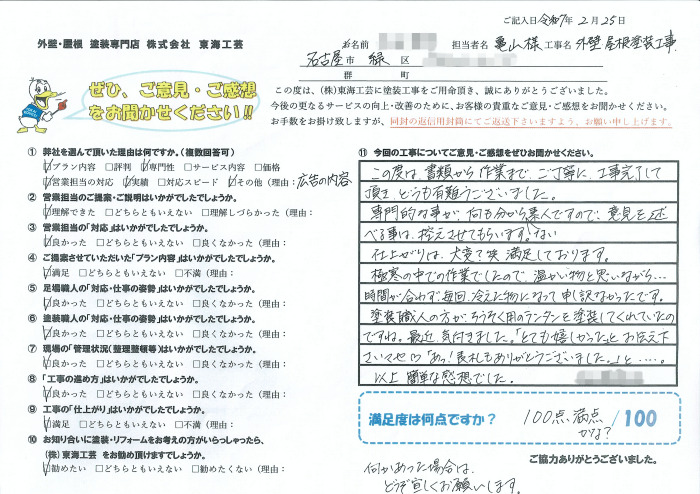 ご記入日 令和7年 2月 25日
外壁・屋根 塗装専門店 株式会社 東海工芸
お名前 担当者名 亀山様 工事名 外壁屋根塗装工事
名古屋市 緑 区
群 町
ぜひ、ご意見・ご感想
をお聞かせください!!
この度は、(株)東海工芸に塗装工事をご用命頂き、誠にありがとうございました。
今後の更なるサービスの向上・改善のために、お客様の貴重なご意見・ご感想をお聞かせください。
お手数をお掛け致しますが、同封の返信用封筒にてご返送下さいますよう、お願い申し上げます。
① 弊社を選んで頂いた理由は何ですか。(複数回答可)
☑プラン内容 □評判 ☑専門性 □サービス内容 □価格
☑営業担当の対応 ☑実績 □対応スピード ☑その他(理由:広告の内容
② 営業担当のご提案・ご説明はいかがでしたでしょうか。
☑理解できた □どちらともいえない □理解しづらかった(理由:
③ 営業担当の「対応」はいかがでしたでしょうか。
☑良かった □どちらともいえない □良くなかった(理由:
④ ご提案させていただいた「プラン内容」はいかがでしたでしょうか。
☑満足 □どちらともいえない □不満(理由:
⑤ 足場職人の「対応・仕事の姿勢」はいかがでしたでしょうか。
☑良かった □どちらともいえない □良くなかった(理由:
⑥ 塗装職人の「対応・仕事の姿勢」はいかがでしたでしょうか。
☑良かった □どちらともいえない □良くなかった(理由:
⑦ 現場の「管理状況(整理整頓等)」はいかがでしたでしょうか。
☑良かった □どちらともいえない □良くなかった(理由:
⑧ 「工事の進め方」はいかがでしたでしょうか。
☑満足 □どちらともいえない □不満(理由:
⑨ 工事の「仕上がり」はいかがでしたでしょうか。
☑満足 □どちらともいえない □不満(理由:
⑩ お知り合いに塗装・リフォームをお考えの方がいらっしゃったら、
(株)東海工芸 をお勧め頂けますでしょうか。
☑勧めたい □どちらともいえない □勧めたくない(理由:
⑪ 今回の工事についてご意見・ご感想をぜひお聞かせください。
この度は、書類から作業まで、ご丁寧に、工事完了して
頂き、どうも有難うございました。
専門的な事が、何も分からない素人ですので、意見を述
べる事は、控えさせてもらいます。
仕上がりは、大変満足しております。
極寒の中での作業でしたので、温かい物と思いながら…
時間が合わず毎回、冷えた物になって申し訳なかったです。
塗装職人の方が、ろうそく用のランタンを塗装してくれていたの
ですね。最近、気付きました。「とても嬉しかった」とお伝え下
さいませ 「あっ!表札もありがとうございました。」と…。
以上 簡単な感想でした。
満足度は何点ですか? 100点満点かな? /100
ご協力ありがとうございました。
何かあった場合は、
どうぞ宜しくお願いします。